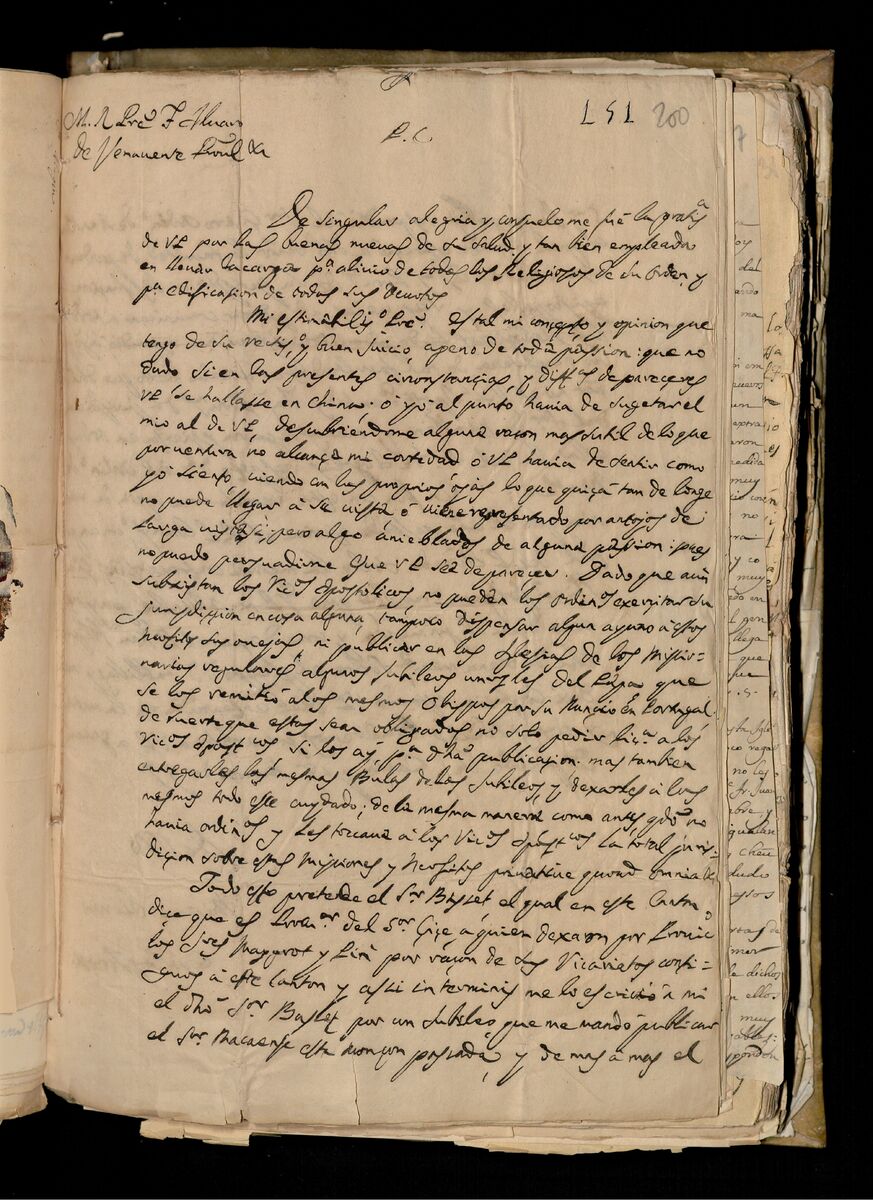 M. R. Pre F. Alvaro
de Venavente Provl &a
P. C.
151 200
De singular alegria y consuelo me fué la gratisa
de VP por las buenas nuevas de su salud y tan bien empleada
en llevar la carga pa alivio de todos los Religiosos de su orden, y
pa edificasion de todos sus devotos
Mi estimabiliso Pre. es tal mi concepto y opinion que
tengo de su y buen juicio, ageno de toda passion: que no
dudo si en las presentes circonstancias, y diffas de pareceres
VP se hallasse en China: ó yó al punto havia de sugetar el
mio al de VP, descubriendome alguna rason mas sutil de lo que
por ventura no alcança mi cortedad ó VP havia de sentir como
yó siento, viendo con los proprios ojos lo que quiçá tan de longe
no puede llegar á su vista ó viene representado por antojos de
larga vista si, pero algo ánieblados de alguna passion: pues
no puedo persuadirme que VP sea de parecer. Dado que aun
subsistan los Vicos Apostolicos no puedan los ordinos exercitar su
jurisdission en cosa alguna, tampoco dispensar algun ayuno a estos
neofitos sus ovejas, ni publicar en las Iglesias de los Missio-
narios regulares algunos Jubileos del Papa que
se los remitió a los mesmos Obispos por su Nunçio en Portugal
de suerte que estos sean obligados no solo pedir liça a los
Vicos Apostcos si los ay, pa dha publicasion. mas tambien
entregarles las mesmas Bulas de los Jubileos, y dexarles a los
mesmos todo este cuydado; de la mesma manera como antes qdo no
havia ordinos y les toccava á los Vicos Apostcos la total juris-
dicion sobre estas Missiones y Neofitos privative quoad omnia
Todo esto pretende el Sor Basset el qual en este Canton
diçe que es Provor del Sor Çiçe á quien dexaron por Provico
los Sres Maygrot y Pin por rason de sus Vicariatos conti-
guos á este Canton y assi in terminis me lo escrivió a mi
el dho Sor Basset por un Jubileo que me mandó publicar
el Sor Macaense esta monçon passada, y de mas a mas el